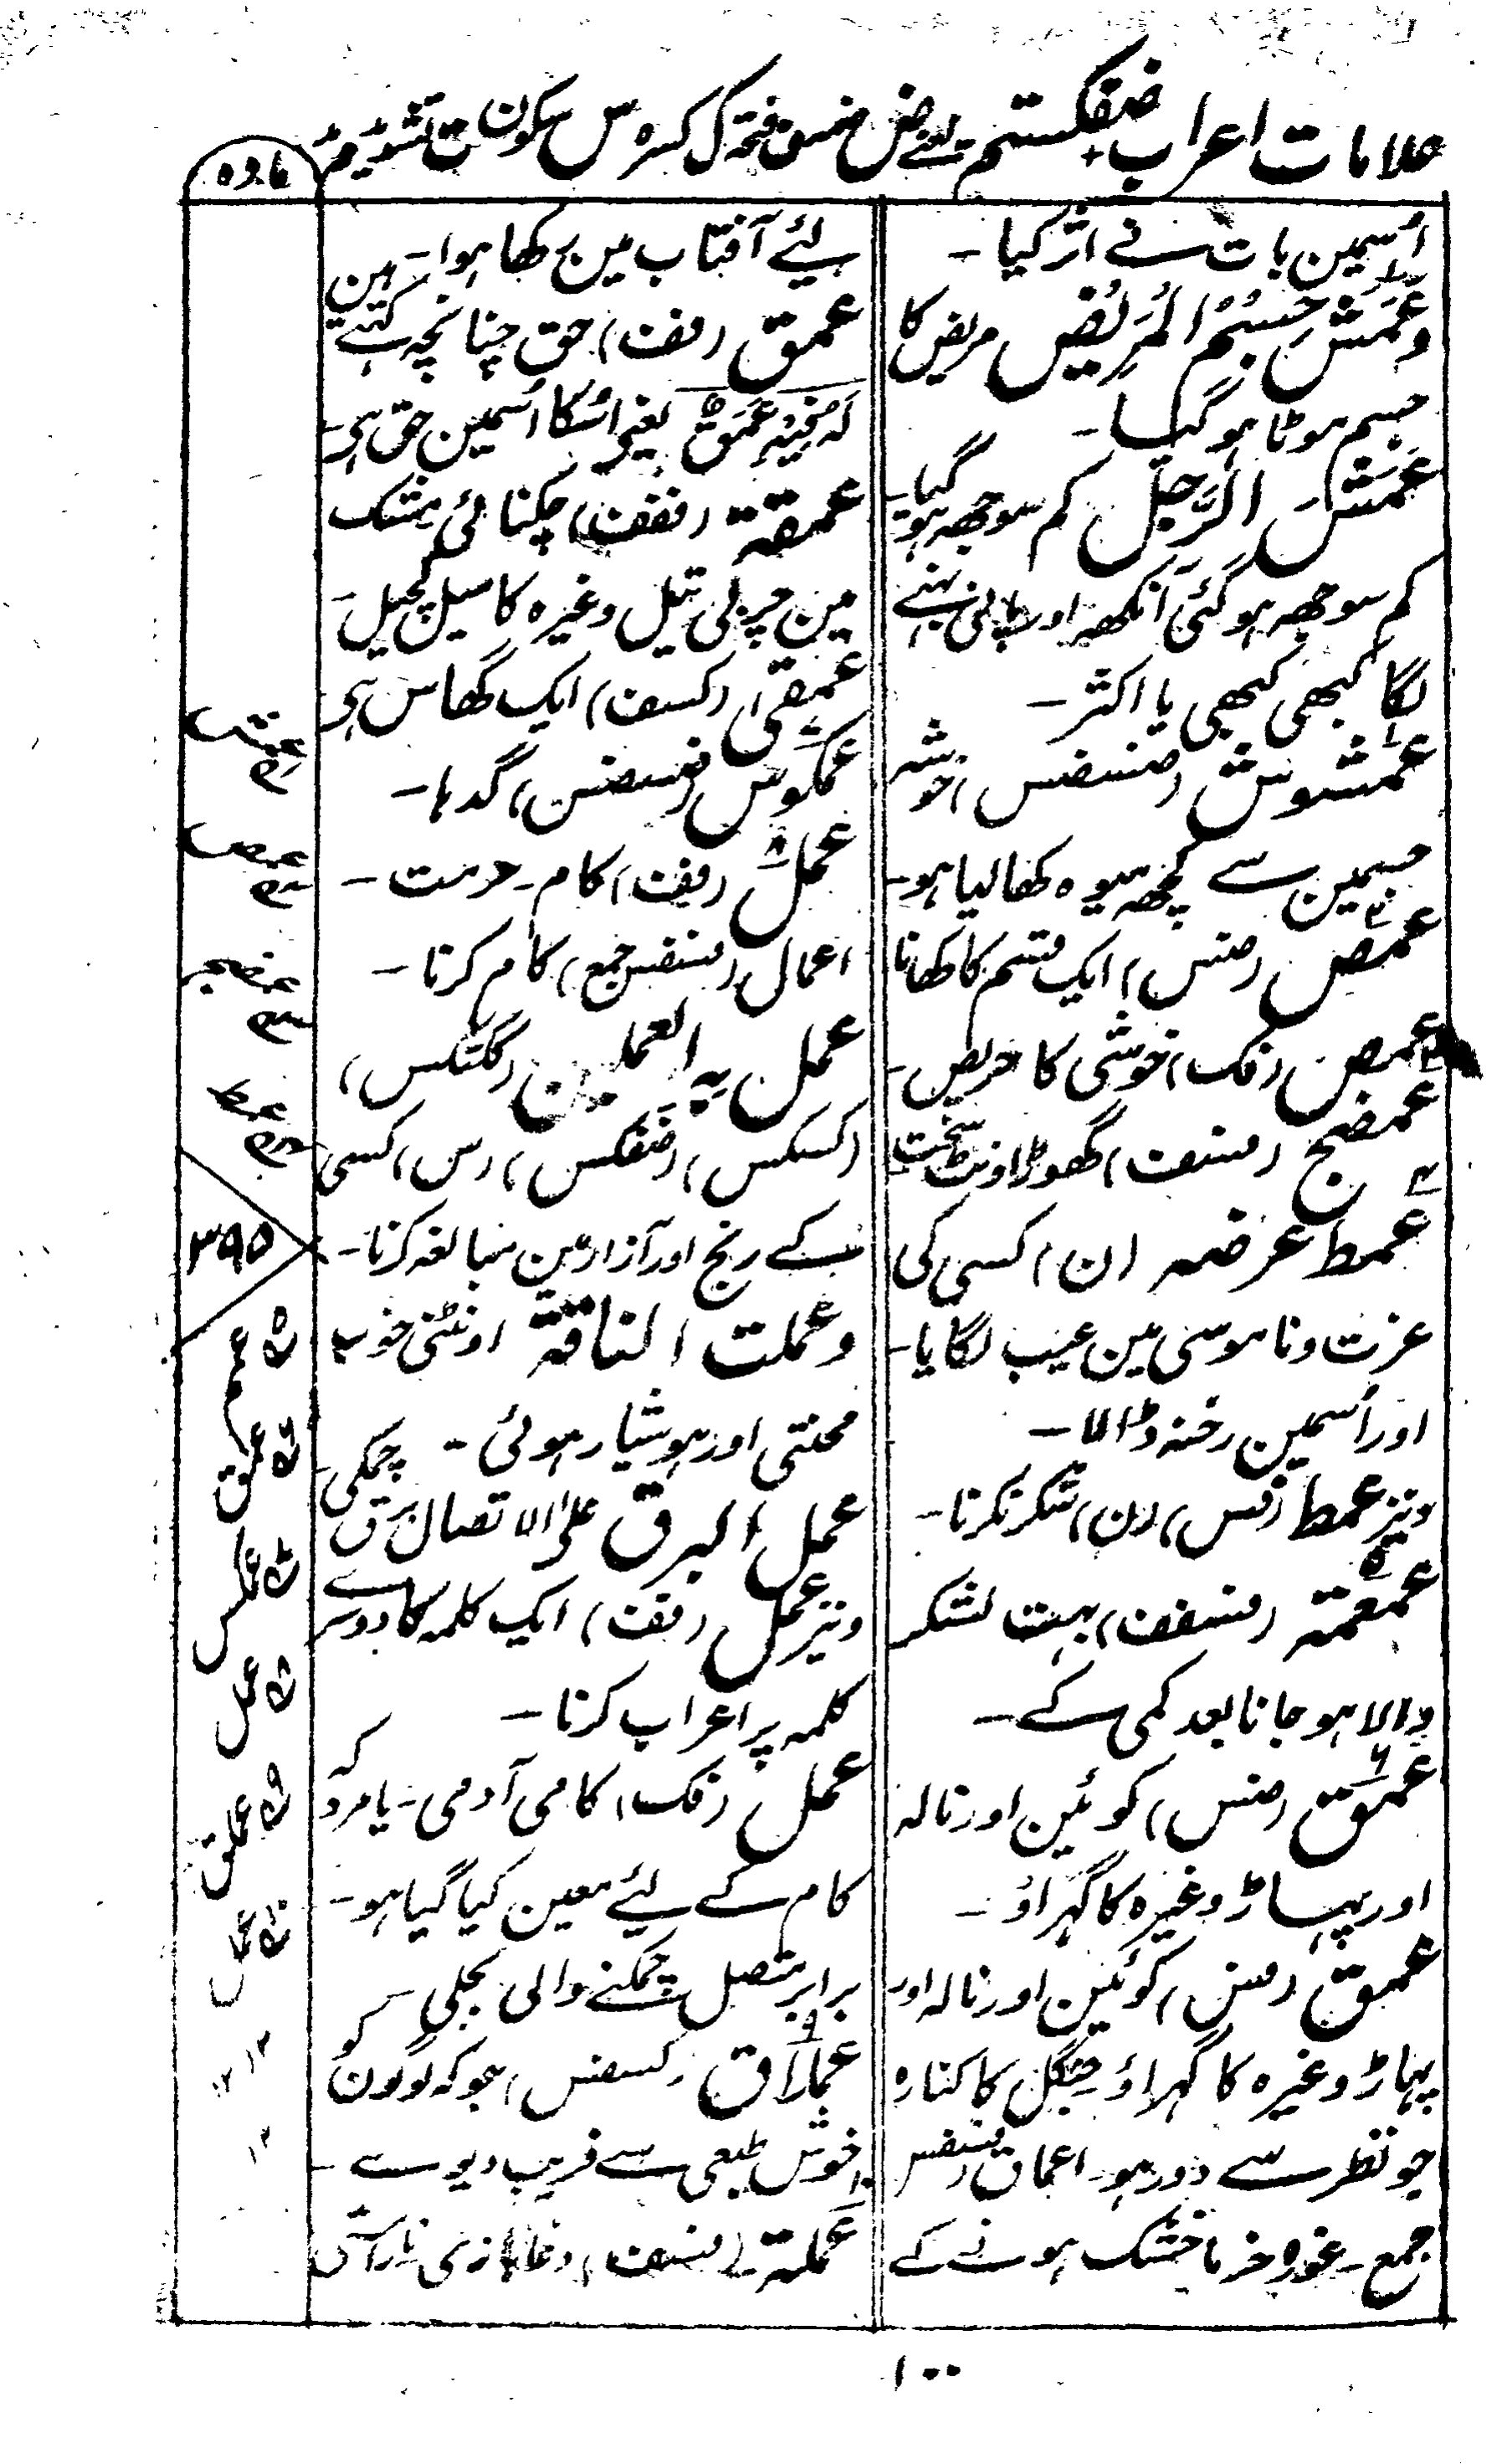 علامات اعراب ضفکستم یعنے ض ضمہ ف فتحہ ک کسرہ س سکون ت تشدید م مد
مادہ
اُسمین بات نے اثر کیا۔
وعَمَشَ جِسْمُ المَرِیْضِ مریض کا
جسم موٹا ہو گیا۔
عَمَشَ الرَّجُلُ کم سوجھہ ہو گیا۔
کم سوجھہ ہو گئی آنکھہ اور پانی بہنے
لگا کبھی کبھی یا اکثر۔
عمشوش (ضسضس) خوشہ
جسمین سے کچھہ میوہ کھا لیا ہو۔
عمص (ضس) ایک قسم کا کھانا
عمص (فک) خوشی کا حریص۔
عمضج (فسف) گھوڑا اونٹ سخت
عمط عرضہ (ن) کسی کی
عزت و ناموسی مین عیب لگایا۔
اور اُسمین رخنہ ڈالا۔
ونیز عمط (فس) (ن) شکر نکرنا۔
عمعمۃ (فسفف) بہت لشکر
والا ہو جانا بعد کمی کے۔
عمق (ضس) کوئین اور نالہ
اور پہاڑ وغیرہ کا گہراؤ۔
عمق (فس) کوئین اور نالہ اور
پہاڑ وغیرہ کا گہراؤ جنگل کا کنارہ
جو نظر سے دور ہو۔ اعماق (فسفس
جمع۔ غورہ خرما خشک ہونے کے
لئے آفتاب مین رکھا ہوا۔
عمق (فف) حق چنانچہ کہتے ہین
لہ فیہ عمق یعنے اُسکا اُسمین حق ہی۔
عمقۃ (ففف) چکنائی مشک
مین چربی تیل وغیرہ کا میل کچیل۔
عمقیٰ (کسف) ایک گھاس ہی
عمکوس (ضسضس) گدہا۔
عمل (فف) کام۔ خدمت۔
اعمال (فسفس جمع) کام کرنا۔
عمل بہ العملین (کستکس)
(کسکس) (ضفکس) (س) کسی
کے رنج اور آزار مین مبالغہ کرنا۔
وعملت الناقۃ اونٹنی خوب
محنتی اور ہوشیار ہوئی۔
عمل البرق علی الاتصال برق چمکی۔
ونیز عمل (فف) ایک کلمہ کا دوسرے
کلمہ پر اعراب کرنا۔
عمل (فک) کامی آدمی۔ یا مرد کہ
کام کے لئے معین کیا گیا ہو۔
برابر متصل چمکنے والی بجلی۔
عملاق (کسفس) جو کہ لوگون کو
خوش طبعی سے فریب دیوے۔
عملۃ (فسف) دغا بازی ناراستی
عمش
عمص
عمضج
عمط
۳۹۵
عمعم
عمق
عمکس
عمل
عملق
۱۰۰